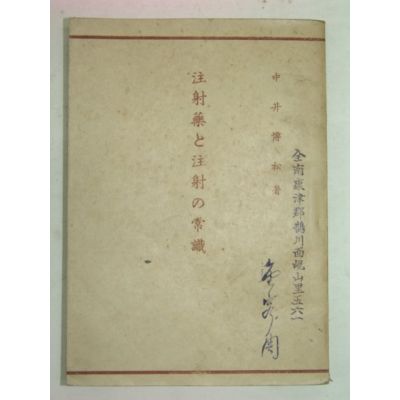 全南康津郡鵲川面峴山里五六一
中井博松著
注射藥と注射の常識